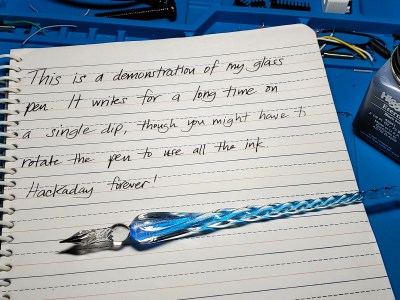 This is a demonstration of my glass
pen. It writes for a long time on
a single dip, though you might have to
rotate the pen to use all the ink.
Hackaday forever!